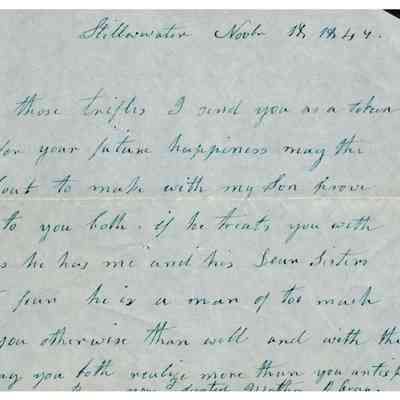 Stillwater Novbr 18, 1844.
those trifles I send you as a token
for your future happiness may the
out to make with my Son prove
to you both. if he treats you with
s he has me and his Dear Sisters
fear he is a man of too much
you otherwise than well and with th
y you both realize more than you antisp
your